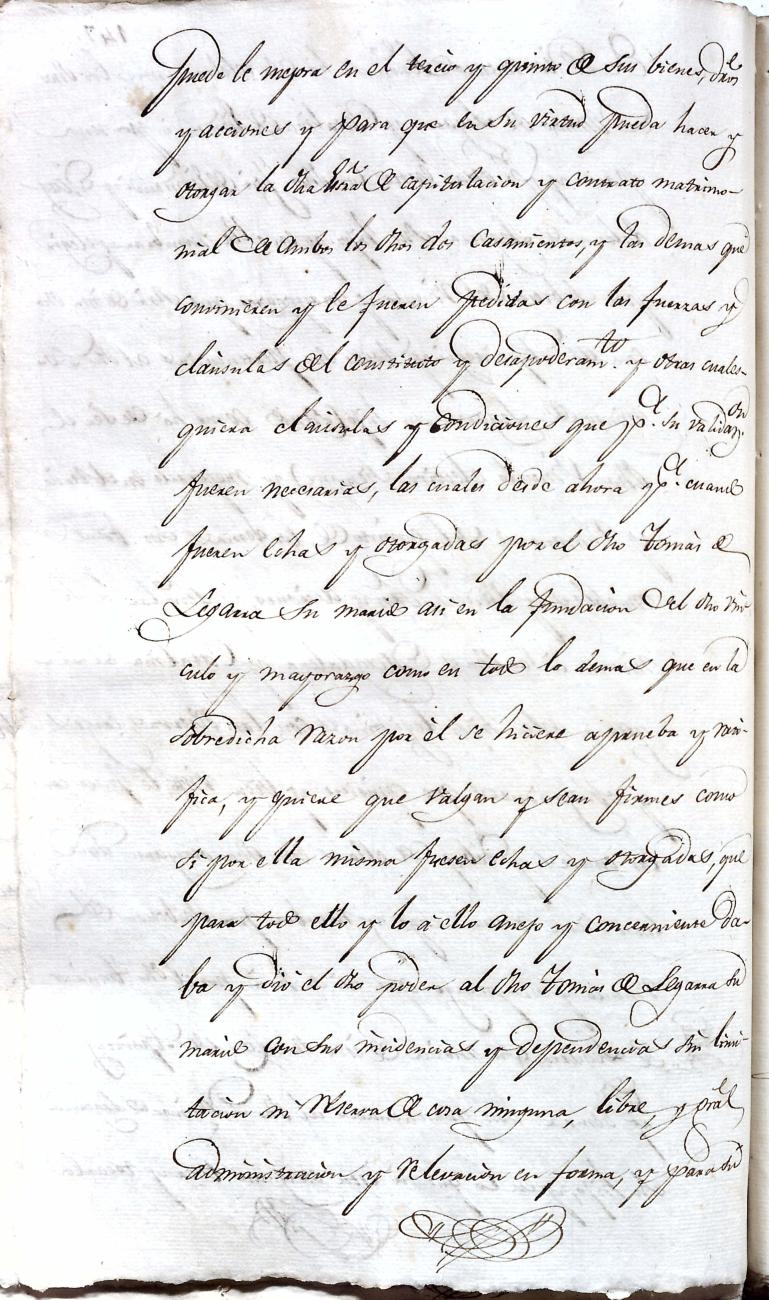 puede le mejora en el tercio y quinto de sus bienes, dros
y acciones y para que en su virtud pueda hacer y
otorgar la dha Esra de capitulacion y contrato matrimo-
nial de ambos los dhos dos casamientos, y las demas que
convinieren y le fueren pedidas con las fuerzas y
cláusulas del constituto y desapoderamto. y otras cuales-
quiera cláusulas y condiciones que pa. su validaon.
fueren necesarias, las cuales desde ahora pa. cuando
fueren echas y otorgadas por el dho Tomás de
Legarra su marido asi en la fundacion del dho vin-
culo y mayorazgo como en todo lo demas que en la
sobredicha razon por él se hiciere aprueba y rati-
fica, y quiere que valgan y sean firmes como
si por ella misma fuesen echas y otorgadas, que
para todo ello y lo á ello anejo y concerniente da-
ba y dió el dho poder al dho Tomás de Legarra su
marido con sus incidencias y dependencias sin limi-
tacion ni reserva de cosa ninguna, libre, y gral
administracion y relevacion en forma, y para su